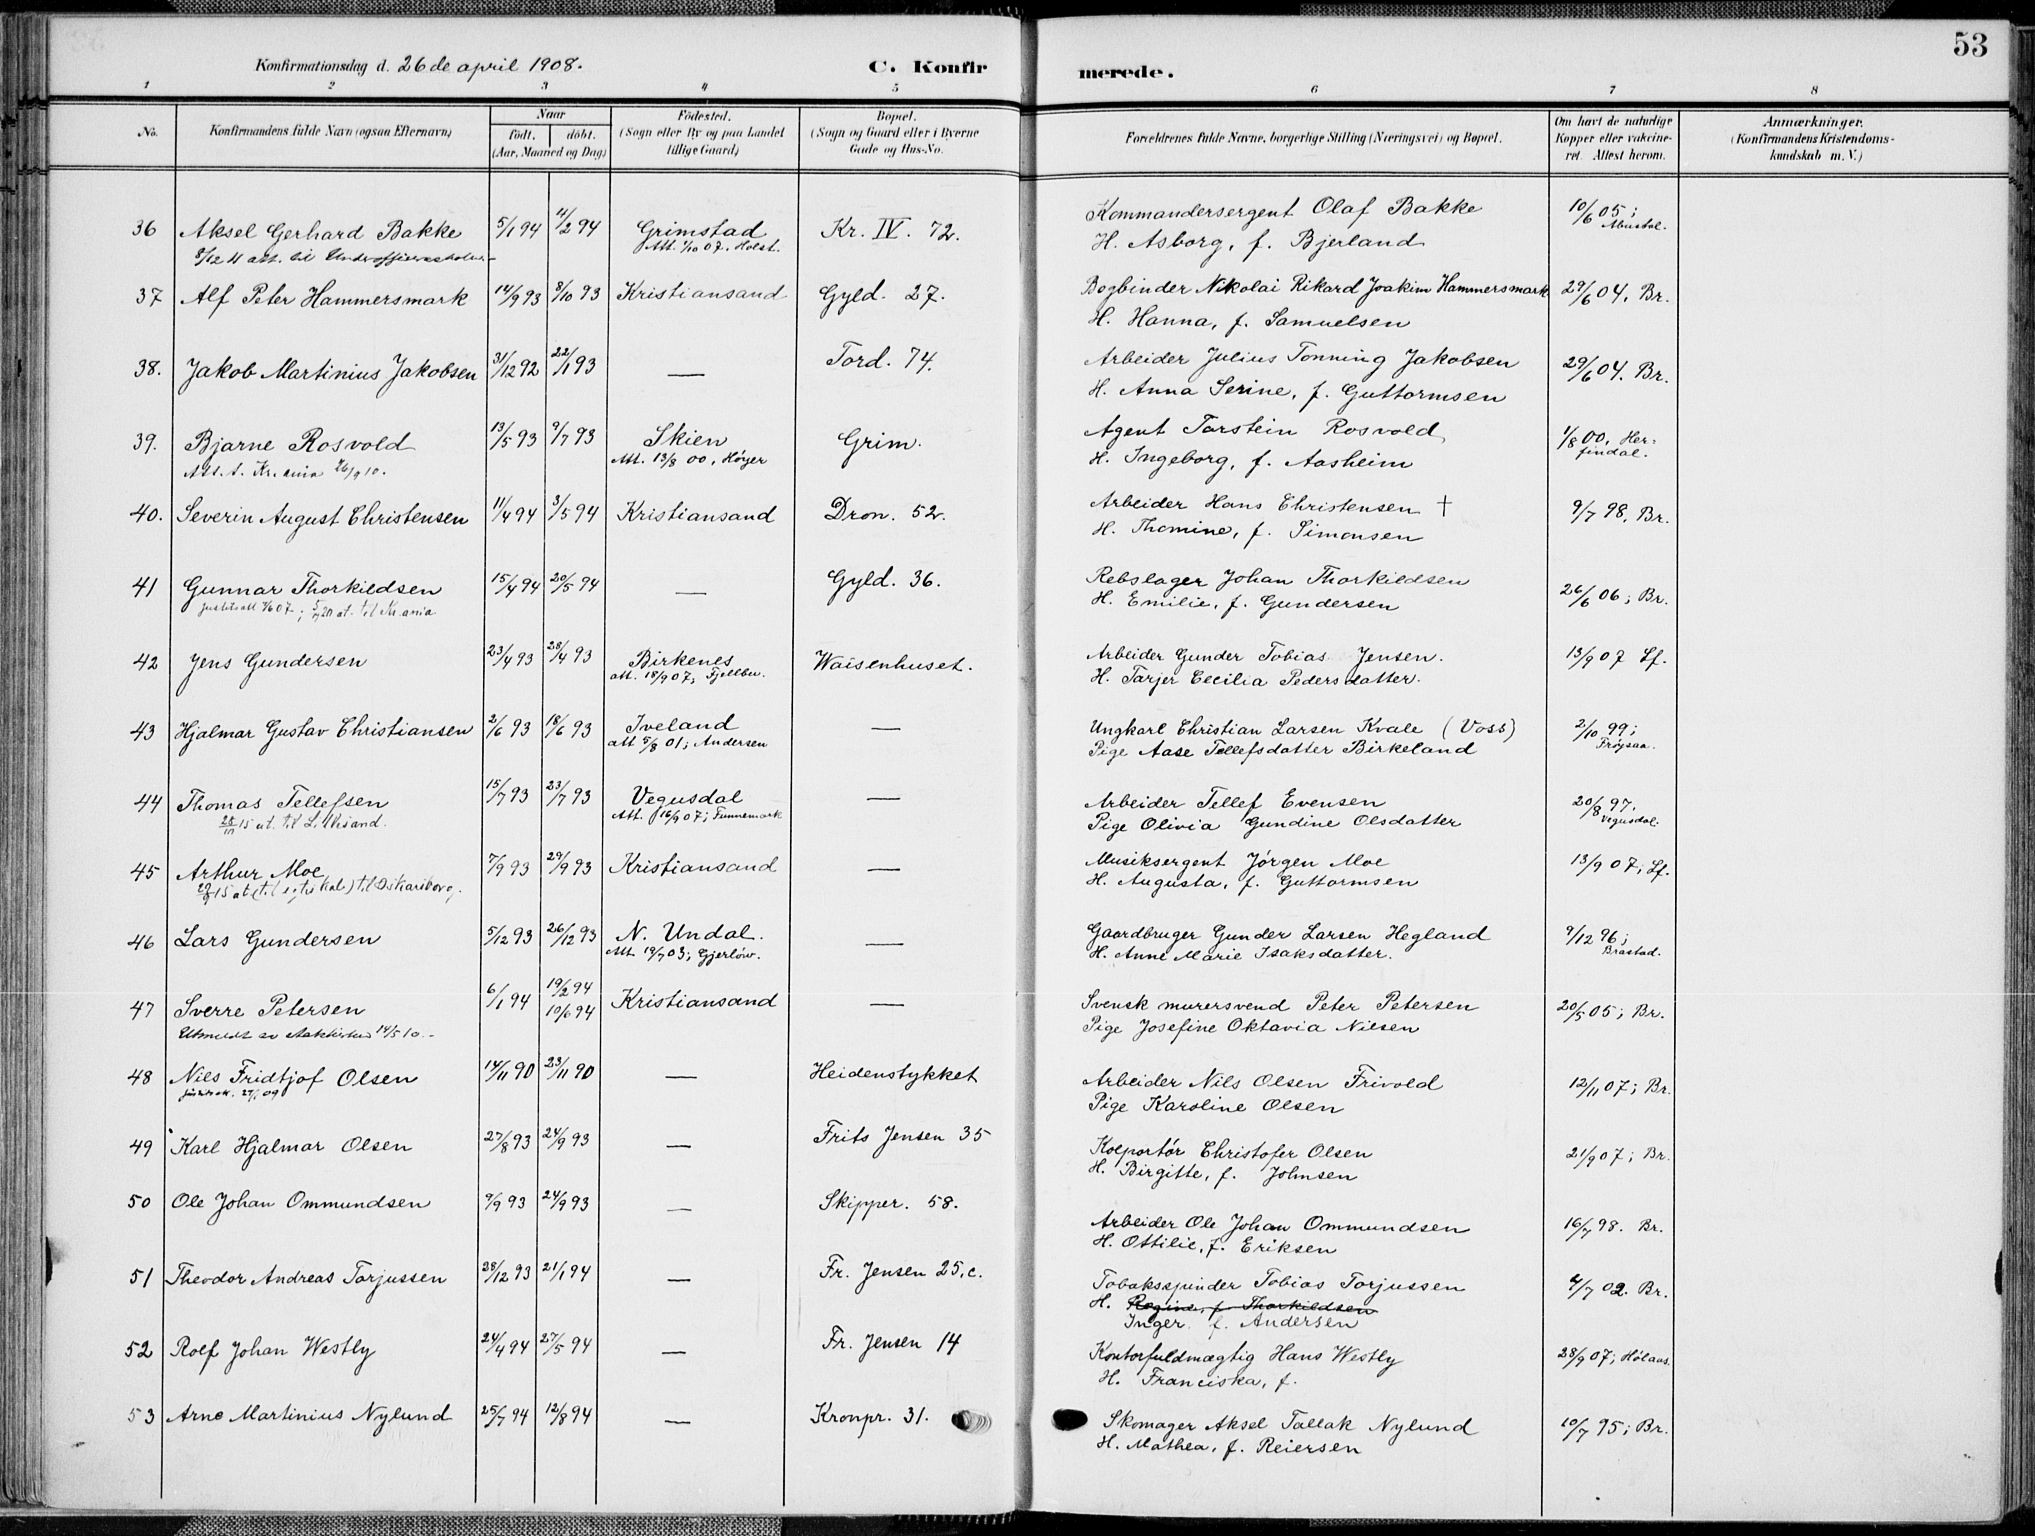 53
Konfirmationsdag d. 26de april 1908.
C. Konfirmerede.
1 2 3 4 5 6 7 8
No.
Konfirmandens fulde Navn (ogsaa Efternavn)
Naar
født. døbt.
(Aar, Maaned og Dag)
Fødested.
(Sogn eller By og paa Landet
tillige Gaard)
Bopæl.
(Sogn og Gaard eller i Byerne
Gade og Hus-No.
Forældrenes fulde Navne, borgerlige Stilling (Næringsvei) og Bopæl.
Om havt de naturlige
Kopper eller vakcine-
ret. Attest herom.
Anmærkninger.
(Konfirmandens Kristendoms-
kundskab m. V.)
36 Aksel Gerhard Bakke 5/1 94 11/2 94 Grimstad Kr. IV. 72. Kommandersergent Olaf Bakke 10/6 05;
8/12 11 att. til Underofficersskolen Att. 1/10 07. Holst. H. Asborg, f. Bjerland
37 Alf Peter Hammersmark 14/9 93 8/10 93 Kristiansand Gyld. 27. Bogbinder Nikolai Rikard Joakim Hammersmark 29/6 04. Br.
H. Hanna, f. Samuelsen
38. Jakob Martinius Jakobsen 31/12 92 22/1 93 — Tord. 74. Arbeider Julius Tonning Jakobsen 29/6 04. Br.
H. Anna Serine, f. Guttormsen
39. Bjarne Rosvold 13/5 93 9/7 93 Skien Grim. Agent Torstein Rosvold 1/8 00, Her=
Att. t. Kr.ania 26/9 10. Att. 13/8 00, Høyer H. Ingeborg, f. Aasheim findal.
40. Severin August Christensen 11/4 94 3/5 94 Kristiansand Dron. 52. Arbeider Hans Christensen † 9/7 98, Br.
H. Thomine, f. Simonsen
41 Gunnar Thorkildsen 15/4 94 20/5 94 — Gyld. 36. Rebslager Johan Thorkildsen 26/6 06; Br.
at. til Kr.ania H. Emilie, f. Gundersen
42 Jens Gundersen 23/4 93 28/4 93 Birkenes Waisenhuset. Arbeider Gunder Tobias Jensen. 13/9 07 Lf.
att. 18/9 07, Fjellbu. H. Tarjer Cecilia Pedersdatter.
43 Hjalmar Gustav Christiansen 2/6 93 18/6 93 Iveland — Ungkarl Christian Larsen Kvale (Voss) 2/10 99;
att 5/8 01; Andersen Pige Aase Tellefsdatter Birkeland Frøysaa.
44 Thomas Tellefsen 15/7 93 23/7 93 Vegusdal — Arbeider Tellef Evensen 20/8 97,
15 at. til L. Att. 16/9 07; Funnemark Pige Olivia Gundine Olsdatter Vegusdal.
45 Arthur Moe 7/9 93 29/9 93 Kristiansand — Musiksergent Jørgen Moe 13/9 07; Lf.
til Oskarsborg. H. Augusta, f. Guttormsen
46 Lars Gundersen 5/12 93 26/12 93 N. Undal. — Gaardbruger Gunder Larsen Hegland 9/12 96;
Att. 19/7 03; Gjerløw. H. Anne Marie Isaksdatter. Brastad.
47 Sverre Petersen 6/1 94 19/2 94 Kristiansand — Svensk murersvend Peter Petersen 20/5 05; Br.
10/6 94
Utmeldt av statskirken 14/5 10.- Pige Josefine Oktavia Nilsen
48 Nils Fridtjof Olsen 14/11 90 23/11 90 — Heidenstykket Arbeider Nils Olsen Frivold 12/11 07; Br.
Pige Karoline Olsen
49 Karl Hjalmar Olsen 27/8 93 24/9 93 — Frits Jensen 35 Kolportør Christofer Olsen 21/9 07; Br.
H. Birgitte, f. Johnsen
50 Ole Johan Ommundsen 9/9 93 24/9 93 — Skipper. 58. Arbeider Ole Johan Ommundsen 16/7 98. Br.
H. Ottilie, f. Eriksen
51 Theodor Andreas Torjussen 28/12 93 21/1 94 — Fr. Jensen 25, c. Tobaksspinder Tobias Torjussen 4/7 02. Br.
H. Regine, f. Thorkildsen
Inger f. Andersen
52 Rolf Johan Westly 24/4 94 27/5 94 — Fr. Jensen 14 Kontorfuldmægtig Hans Westly 28/9 07; Hølaas.
H. Franciska, f.
53 Arne Martinius Nylund 25/7 94 12/8 94 — Kronpr. 31. Skomager Aksel Tallak Nylund 10/7 95; Br.
H. Mathea, f. Reiersen